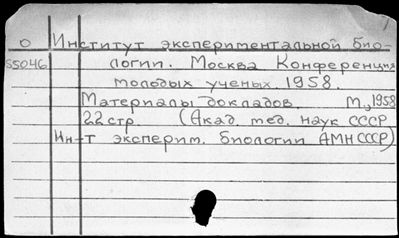 О Институт экспериментальной био-
S5046 логии. Москва Конференция
молодых ученых. 1958.
Материалы докладов. М., 1958
22 стр. (Акад. мед. наук СССР
Ин-т эксперим. биологии АМН СССР)